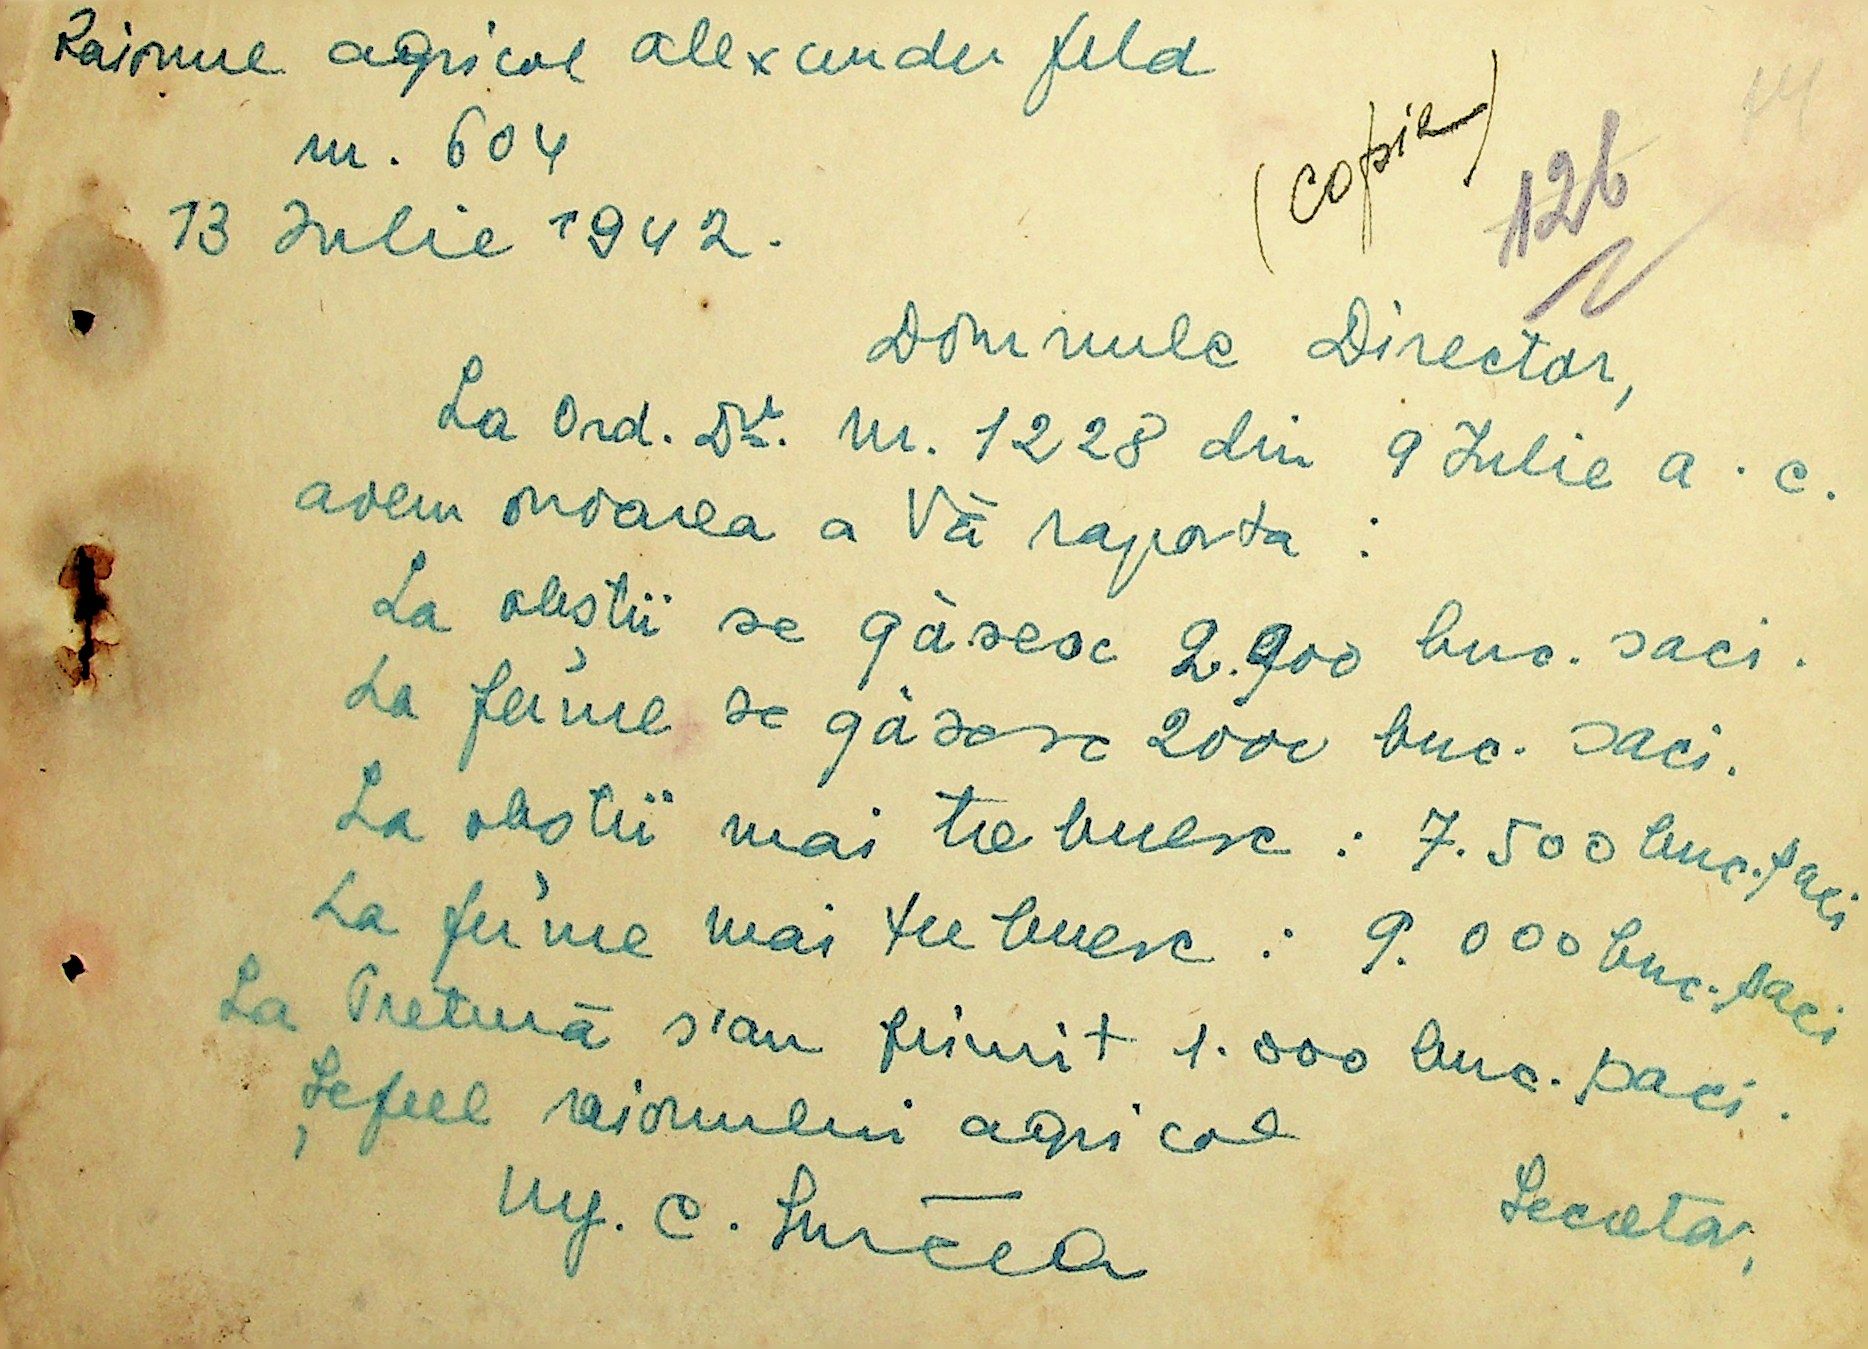 Raionul agricol Alexanderfeld
nr. 604
13 Iulie 1942.
(copie)
126
14
Domnule Director,
La Ord. Dv. Nr. 1228 din 9 Iulie a.c.
avem onoarea a Vă raporta :
La obștii se găsesc 2.900 buc. saci.
La ferme se găsesc 2000 buc. saci.
La obștii mai trebuesc : 7.500 buc. saci
La ferme mai trebuesc : 9.000 buc. saci
La Pretură s'au primit 1.000 buc. saci.
Șeful raionului agricol
Ing. C.
Secretar,